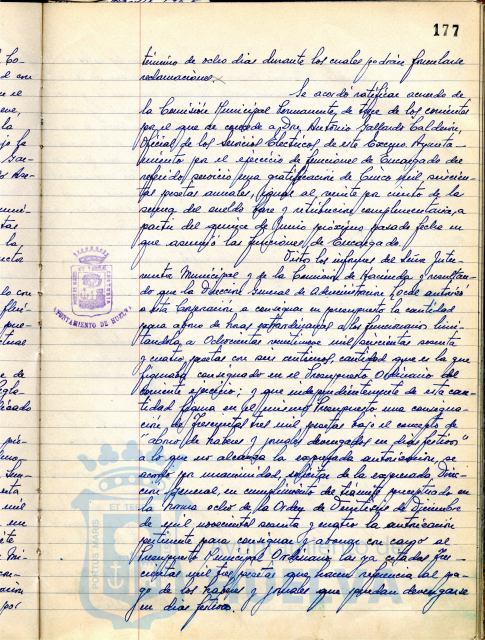 177
término de ocho días durante los cuales podrán formularse
reclamaciones.
Se acordó ratificar acuerdo de
la Comisión Municipal Permanente, de de los corrientes
por el que se concede a Don Antonio Gallardo Calderón,
Oficial de los Servicios Eléctricos de este Excmo. Ayunta-
miento por el ejercicio de funciones de Encargado del
referido servicio una gratificación de Cinco mil
tas pesetas anuales, igual al veinte por ciento de la
suma del sueldo base y retribución complementaria, a
partir del quince de Junio próximo pasado fecha en
que asumió las funciones de Encargado.
Vistos los informes del Señor Inter-
ventor Municipal y de la Comisión de Hacienda y resultan-
do que la Dirección General de Administración Local autorizó
a esta Corporación a consignar en presupuesto la cantidad
para abono de horas extraordinarias a los funcionarios limi-
tándola a Ochocientas veintinueve mil seiscientas sesenta
y cuatro pesetas con seis céntimos, cantidad que es la que
figuraba consignada en el Presupuesto Ordinario del
corriente ejercicio; y que independientemente de esta can-
tidad figura en el mismo Presupuesto una consigna-
ción de Trescientas tres mil pesetas bajo el concepto de
"abono de haberes y jornales devengados en días festivos"
a lo que no alcanza la expresada autorización, se
acordó por unanimidad, solicitar de la expresada Direc-
ción General, en cumplimiento de trámite preceptuado en
la norma octava de la Orden de Veintiseis de Diciembre
de mil novecientos sesenta y cuatro la autorización
pertinente para consignar y abonar con cargo al
Presupuesto Municipal Ordinario las ya citadas Tres
cientas mil tres pesetas que hacen referencia al pa-
go de los haberes y jornales que puedan devengarse
en días festivos.
AYUNTAMIENTO DE HUELVA
PORTUS MARIS ET TERRAE
HUELVA